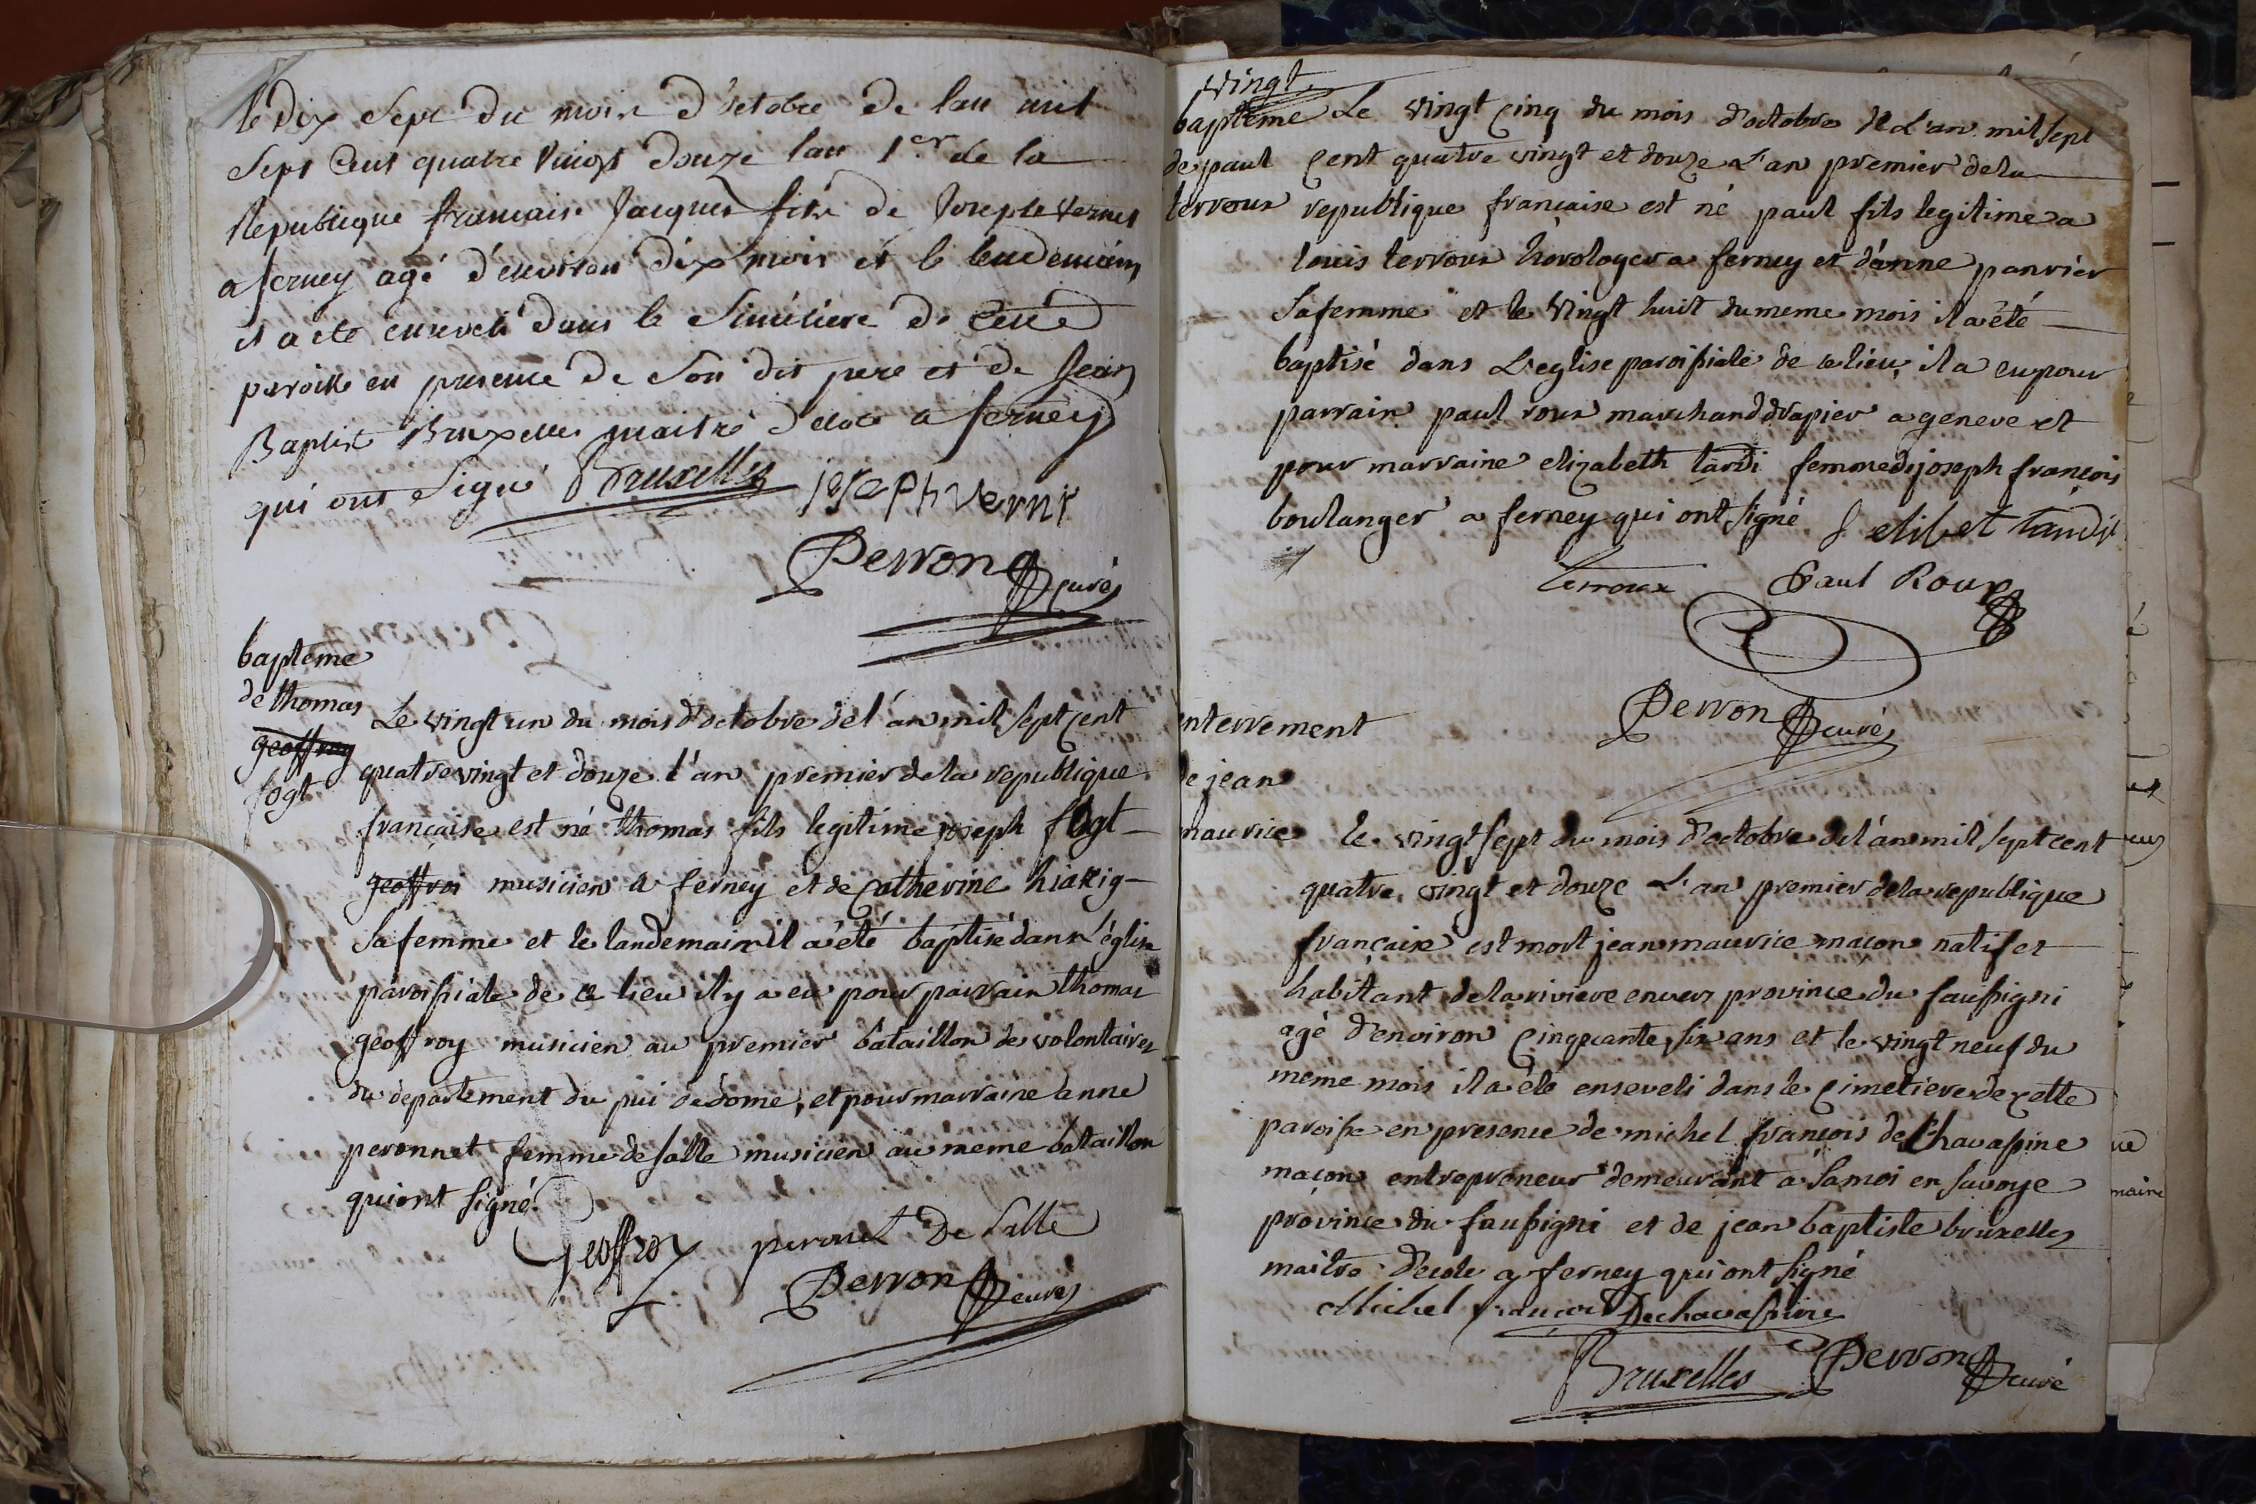 le dix Sept du mois d'octobre de lan mil
Sept Cent quatre vingt douze lan 1er de la
Republique francaise Jacques fils de Joseph vernes
a ferney agé d'environ dix mois et le lendemain
il a eté enseveli dans le Simétiere de cette
paroisse en presence de Son dit pere et de Jean
Baptiste Bruxelles maitre d'ecole a ferney
qui ont Signé Bruxelles joseph vernr
Perron curé
bapteme
de thomas
geoffroy
fogt
Le vingt un du mois d'octobre de l'an mil sept cent
quatre vingt et douze l'an premier de la republique
française est né thomas fils legitime joseph fogt
geoffroi musicien a ferney et de catherine
sa femme et le landemain il a été baptisé dans l'église
paroissiale de ce lieu il y a eu pour parrain thomas
geoffroy musicien au premier bataillon de volontaires
du departement du pui de dome, et pour marraine
peronnet femme desalle musicien au meme bataillon
qui ont signé
Geoffroy peronet De Salle
Perron curé
vingt
bapteme
de paul
terroux
Le vingt cinq du mois d'octobre de L'an mil sept
cent quatre vingt et douze L'an premier de la
republique française est né paul fils legitime a
louis terroux horologer a ferney et d'anne panrier
sa femme et le vingt huit du meme mois il a été
baptisé dans L'eglise paroissiale de ce lieu, il a eu pour
parrain paul roux marchand drapier a geneve et
pour marraine elizabeth tardi femme de joseph françois
boulanger a ferney qui ont signé
Terroux Paul Roux
Perron curé
nterrement
e jean
maurice
le vingt sept du mois d'octobre de l'an mil sept cent
quatre vingt et douze L'an premier de la republique
française est mort jean maurice maçon natif et
habitant de la riviere envers province du faussigni
agé d'environ cinquante six ans et le vingt neuf du
meme mois il a été enseveli dans le cimetiere de cette
paroisse en presence de michel françois dechavassine
maçon entrepreneur demeurant a samoi en savoye
province du faussigni et de jean baptiste bruxelles
maitre d'ecole a ferney qui ont signé
Michel françois Dechavassine
Bruxelles Perron curé